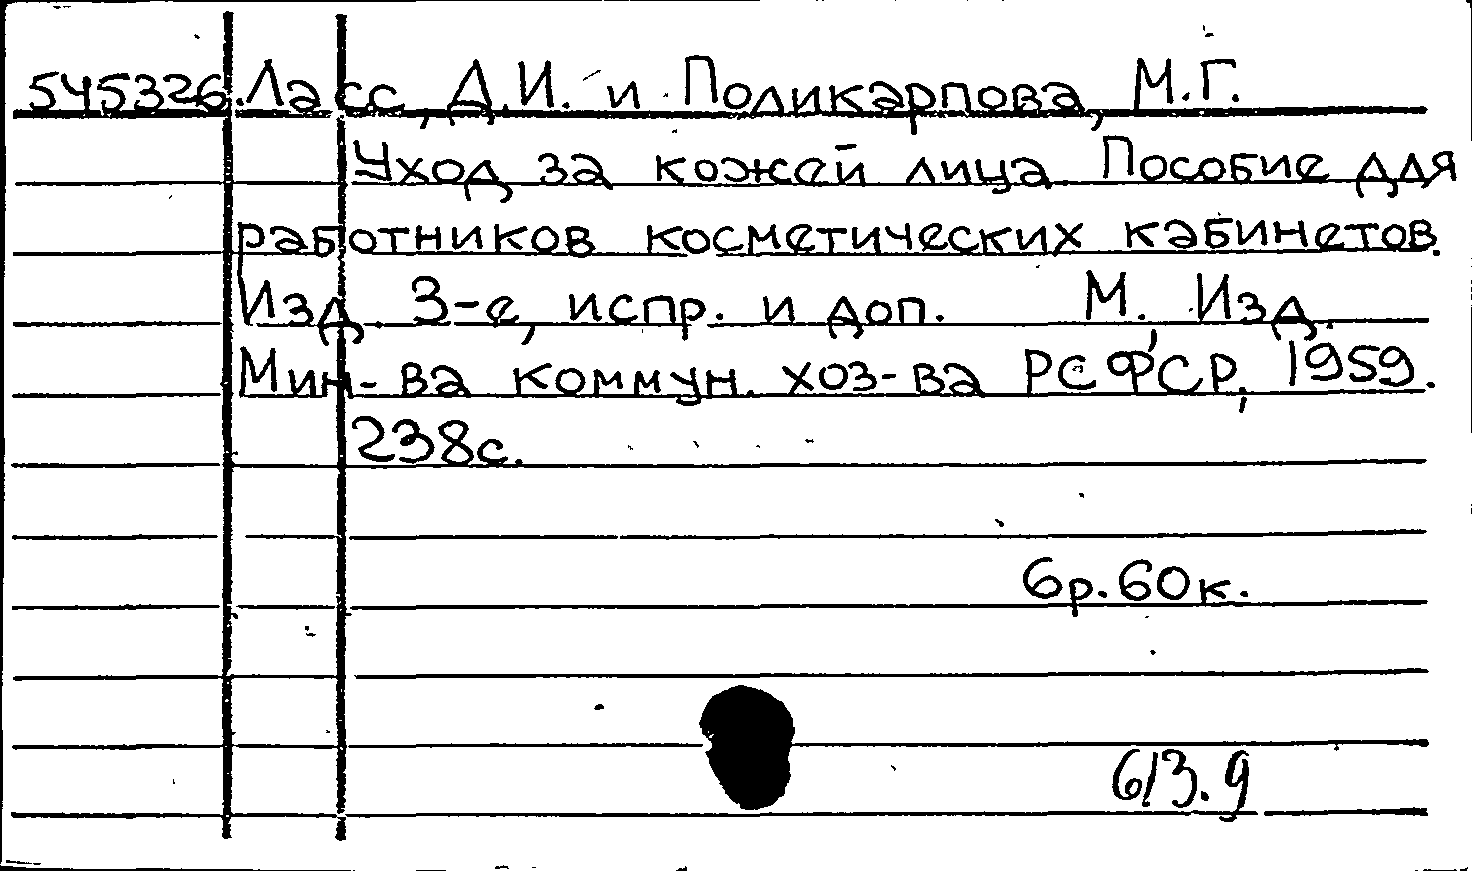 545326. Ласс, Д.И. и Поликарпова, М.Г.
Уход за кожей лица. Пособие для
работников косметических кабинетов.
Изд. 3-е, испр. и доп. М., Изд.
Мин-ва коммун. хоз-ва РСФСР, 1959.
238с.
6р.60к.
613.9